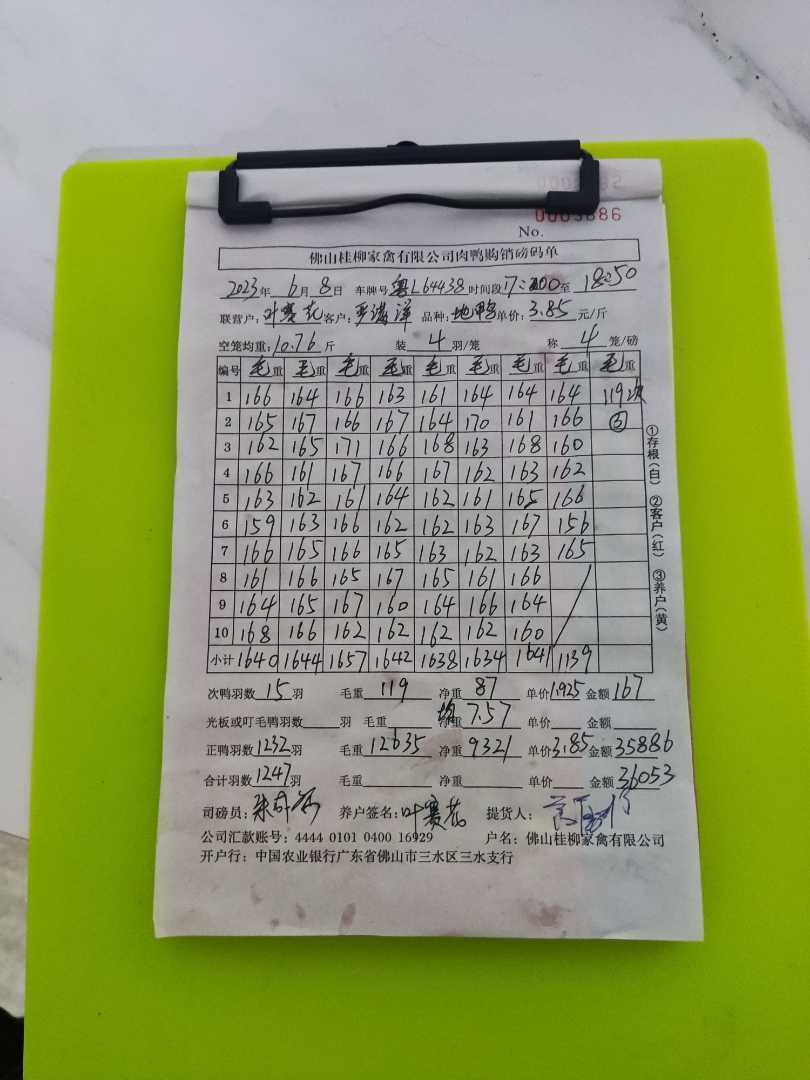 No. 0003886
佛山桂柳家禽有限公司肉鸭购销磅码单
2023年 6月 8日 车牌号 粤L64438 时间段 17:00至 18:50
联营户: 叶赛花 客户: 品种: 地鸭 单价: 3.85 元/斤
空笼均重: 10.76 斤 装 4 羽/笼 称 4 笼/磅
编号 毛重 毛重 毛重 毛重 毛重 毛重 毛重 毛重 毛重
1 166 164 166 163 161 164 164 164 119次
2 165 167 166 167 164 170 161 166
3 162 165 171 166 168 163 168 160
4 166 161 167 166 167 162 163 162
5 163 162 161 164 162 161 165 166
6 159 163 166 162 162 163 167 156
7 166 165 166 165 163 162 163 165
8 161 166 165 167 165 161 166
9 164 165 167 160 164 166 164
10 168 166 162 162 162 162 160
小计 1640 1644 1657 1642 1638 1634 1641 1139
①存根(白) ②客户(红) ③养户(黄)
次鸭羽数 15 羽 毛重 119 净重 87 单价 1.925 金额 167
光板或叮毛鸭羽数 羽 毛重 净重 均7.57 单价 金额
正鸭羽数 1232 羽 毛重 12635 净重 9321 单价 3.85 金额 35886
合计羽数 1247 羽 毛重 净重 单价 金额 36053
司磅员: 养户签名: 叶赛花 提货人:
公司汇款账号: 4444 0101 0400 16929 户名: 佛山桂柳家禽有限公司
开户行: 中国农业银行广东省佛山市三水区三水支行